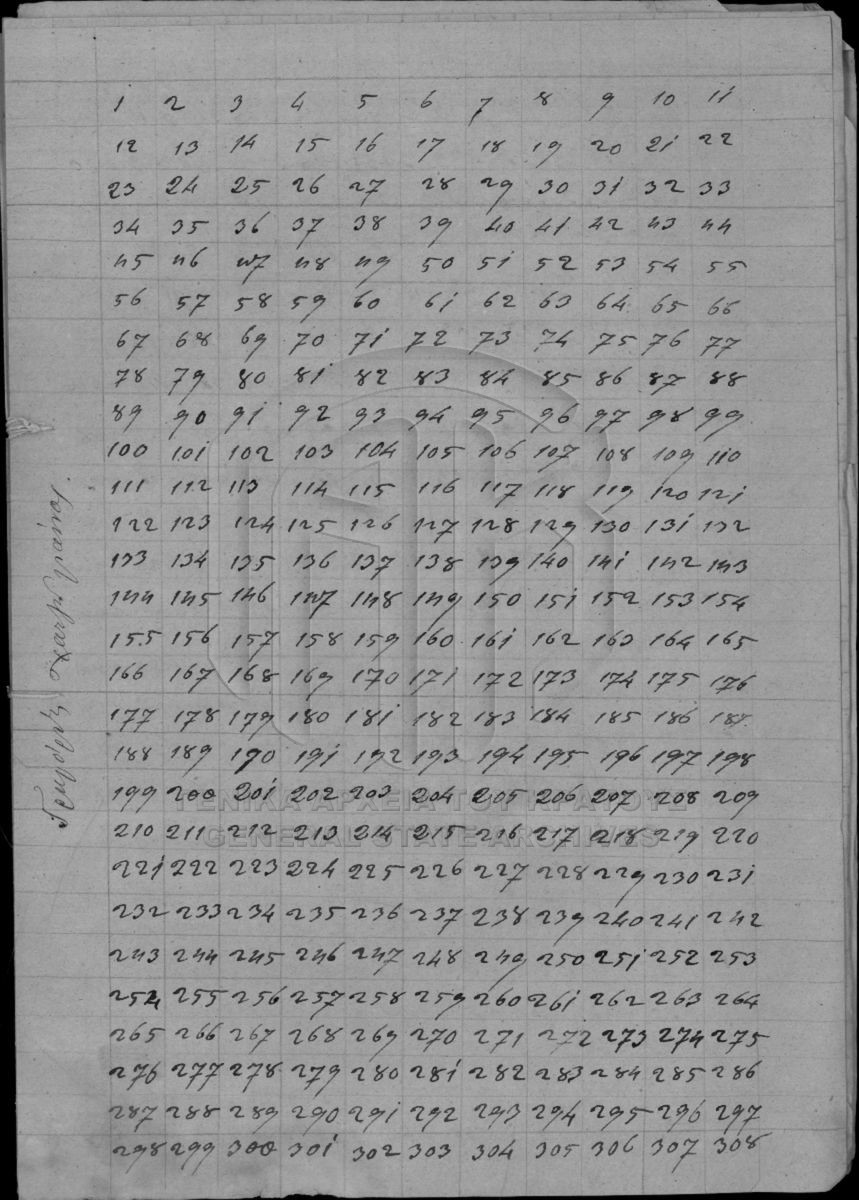 1 2 3 4 5 6 7 8 9 10 11
12 13 14 15 16 17 18 19 20 21 22
23 24 25 26 27 28 29 30 31 32 33
34 35 36 37 38 39 40 41 42 43 44
45 46 47 48 49 50 51 52 53 54 55
56 57 58 59 60 61 62 63 64 65 66
67 68 69 70 71 72 73 74 75 76 77
78 79 80 81 82 83 84 85 86 87 88
89 90 91 92 93 94 95 96 97 98 99
100 101 102 103 104 105 106 107 108 109 110
111 112 113 114 115 116 117 118 119 120 121
122 123 124 125 126 127 128 129 130 131 132
133 134 135 136 137 138 139 140 141 142 143
144 145 146 147 148 149 150 151 152 153 154
155 156 157 158 159 160 161 162 163 164 165
166 167 168 169 170 171 172 173 174 175 176
177 178 179 180 181 182 183 184 185 186 187
188 189 190 191 192 193 194 195 196 197 198
199 200 201 202 203 204 205 206 207 208 209
ΓΕΝΙΚΑ ΑΡΧΕΙΑ ΤΟΥ ΚΡΑΤΟΥΣ
210 211 212 213 214 215 216 217 218 219 220
GENERAL STATE ARCHIVES
221 222 223 224 225 226 227 228 229 230 231
232 233 234 235 236 237 238 239 240 241 242
243 244 245 246 247 248 249 250 251 252 253
254 255 256 257 258 259 260 261 262 263 264
265 266 267 268 269 270 271 272 273 274 275
276 277 278 279 280 281 282 283 284 285 286
287 288 289 290 291 292 293 294 295 296 297
298 299 300 301 302 303 304 305 306 307 308